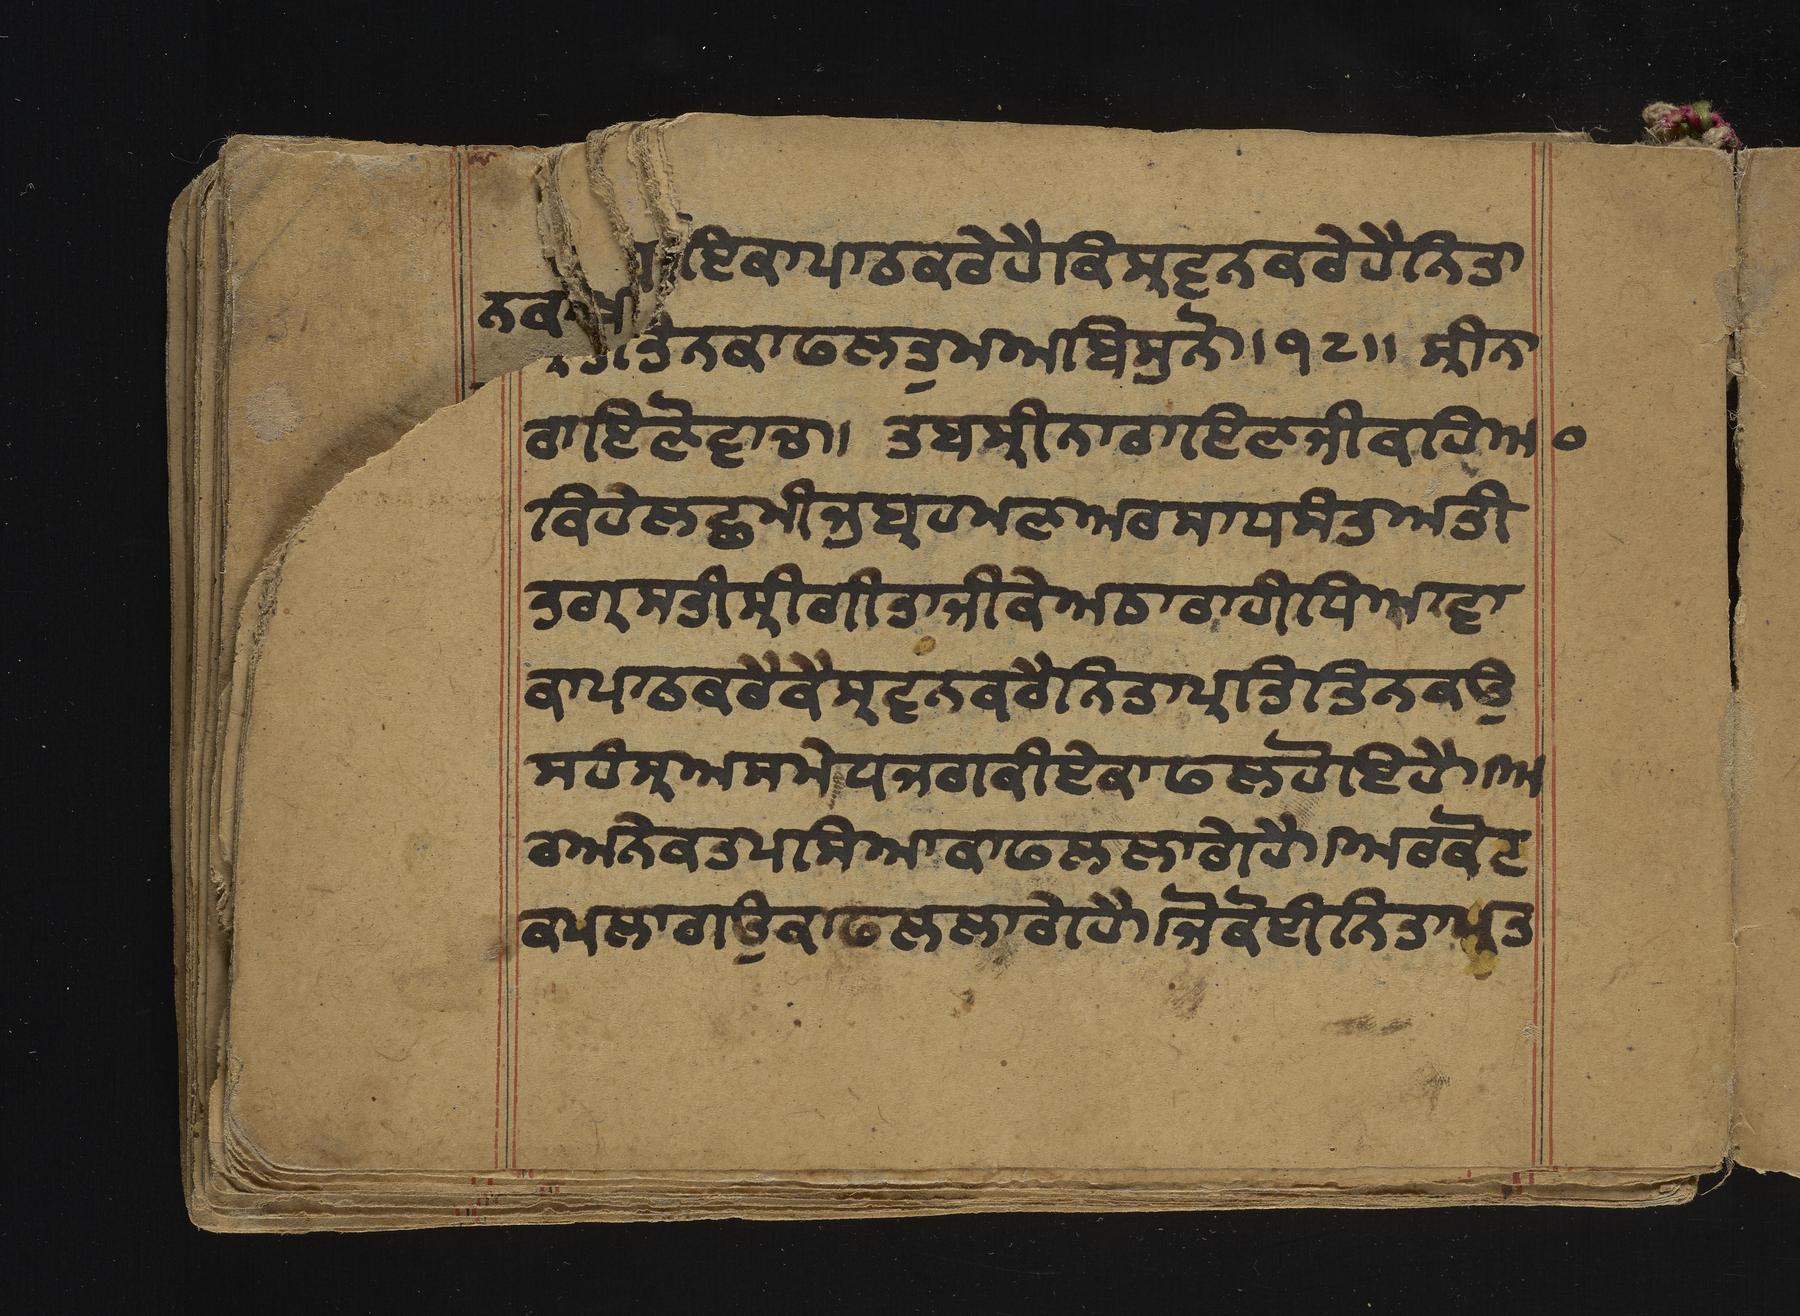 ਇਕਾਪਾਠਕਰੇਹੈਕਿਸ੍ਰਵਨਕਰੇਹੈਨਿਤਾ
ਨਕਾ
ਤਿਨਕਾਫਲਤੁਮਆਖਿਸੁਨੋ।੧੮॥ ਸ੍ਰੀਨਾ
ਰਾਇਣੋਵਾਚ॥ ਤਬਸ੍ਰੀਨਾਰਾਇਣਜੀਕਹਿਅ੦
ਕਿਹੇਲਛਮੀਜੁਬ੍ਰਹਮਣਅਰਸਾਧਸੰਤਅਤੀ
ਤਗ੍ਰਸਤੀਸ੍ਰੀਗੀਤਾਜੀਕੇਅਠਾਰਾਹੀਧਿਆਵਾ
ਕਾਪਾਠਕਰੈਕੈਸ੍ਰਵਨਕਰੈਨਿਤਾਪ੍ਰਤਿਤਿਨਕਉ
ਸਹੰਸ੍ਰਅਸਮੇਧਜਗਕੀਏਕਾਫਲਹੋਇਹੈ।ਅ
ਰਅਨੇਕਤਪਸਿਆਕਾਫਲਲਾਗੇਹੈ।ਅਰਕੋਟ
ਕਪਲਾਗਊਕਾਫਲਲਾਗੇਹੈ।ਜੋਕੋਈਨਿਤਾਪ੍ਰਤ